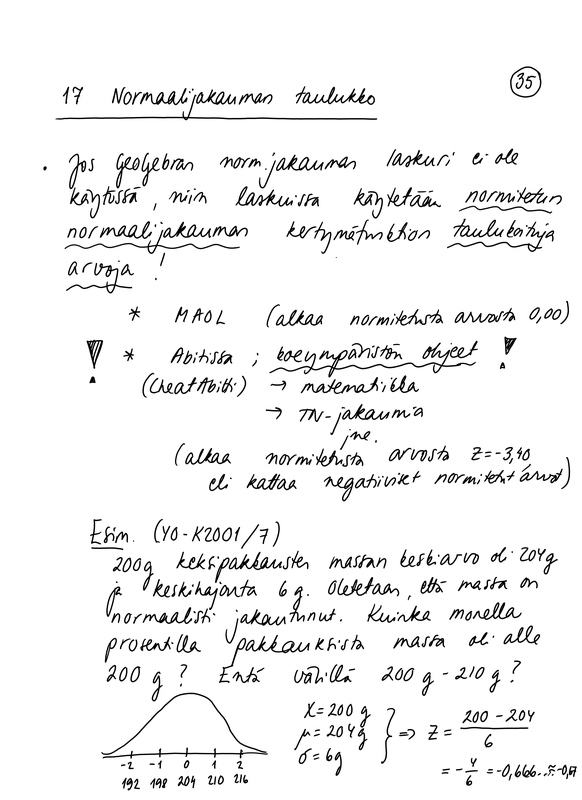 35
17 Normaalijakauman taulukko
. Jos GeoGebran norm.jakauman laskuri ei ole
käytössä, niin laskuissa käytetään normitetun
normaalijakauman kertymäfunktion taulukoituja
arvoja !
* MAOL (alkaa normitetusta arvosta 0,00)
! * Abitissa ; koeympäristön ohjeet !
(CheatAbitti) → matematiikka
→ TN-jakaumia
jne.
(alkaa normitetusta arvosta Z=-3,40
eli kattaa negatiiviset normitetut arvot)
Esim. (YO-K2001/7)
200g keksipakkausten massan keskiarvo oli 204g
ja keskihajonta 6 g. Oletetaan, että massa on
normaalisti jakautunut. Kuinka monella
prosentilla pakkauksista massa oli alle
200 g ? Entä välillä 200 g - 210 g ?
X = 200 g
μ = 204 g } ⇒ Z = 200 - 204 / 6
σ = 6g
-2 -1 0 1 2
192 198 204 210 216
= -4/6 = -0,666... ≈ -0,67